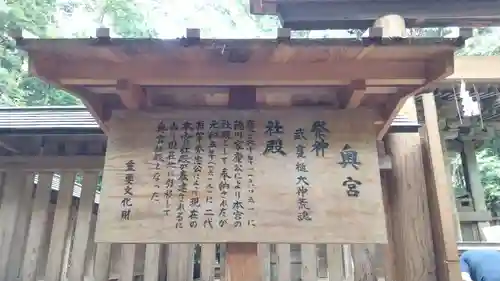 奥宮
祭神
武甕槌大神荒魂
社殿
慶長十年(一六〇五)に
徳川家康公により本宮の
社殿として奉納されたが
元和五年(一六一九)に二代
現在の
されるに
現在地に引移して
奥宮社殿となった
重要文化財